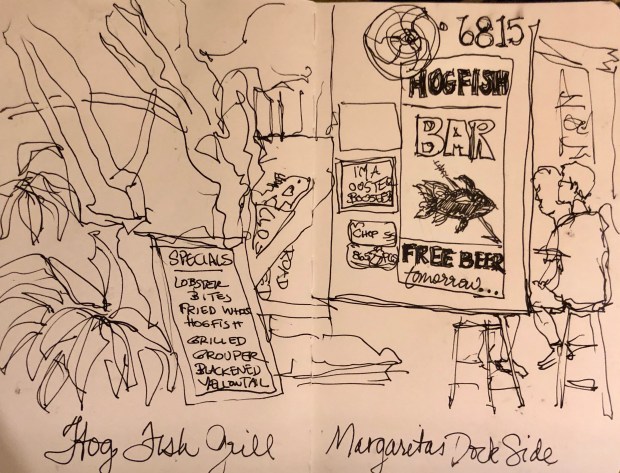 SPECIALS
LOBSTER
BITES
FRIED
HOGFISH
GRILLED
GROUPER
BLACKENED
YELLOWTAIL
ROAD
6815
HOGFISH
BAR
I'M A
OOSTER
BOOSTER
CHOP
FREE BEER
tomorrow...
Hog Fish Grill
Margaretas Dock Side